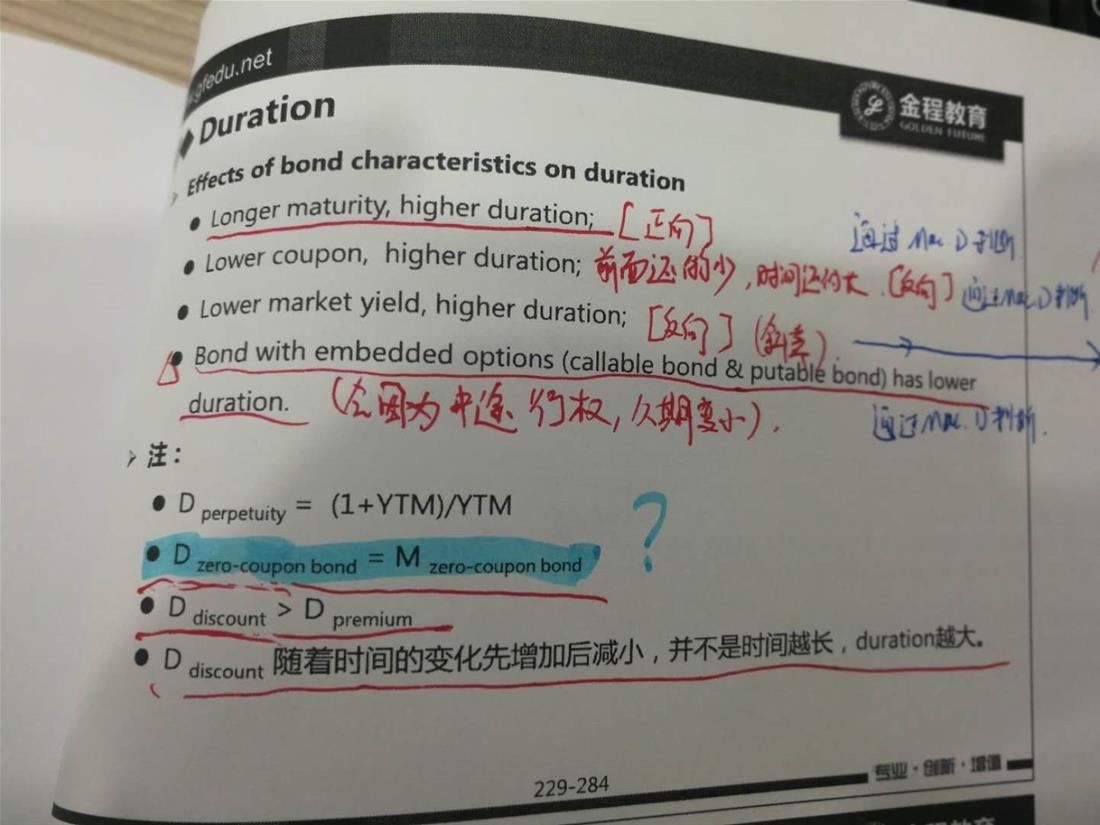 gfedu.net
金程教育
GOLDEN FUTURE
Duration
Effects of bond characteristics on duration
Longer maturity, higher duration; [正向]
通过 Mac. D 判断.
Lower coupon, higher duration; 前面还的少,时间还的长. [反向] 通过 Mac. D 判断.
Lower market yield, higher duration; [反向] (斜率).
Bond with embedded options (callable bond & putable bond) has lower
duration. (会因为中途行权,久期变小).
通过 Mac. D 判断.
注:
D perpetuity = (1+YTM)/YTM
?
D zero-coupon bond = M zero-coupon bond
D discount > D premium
D discount 随着时间的变化先增加后减小,并不是时间越长,duration越大。
专业·创新·增值
229-284
金程教育